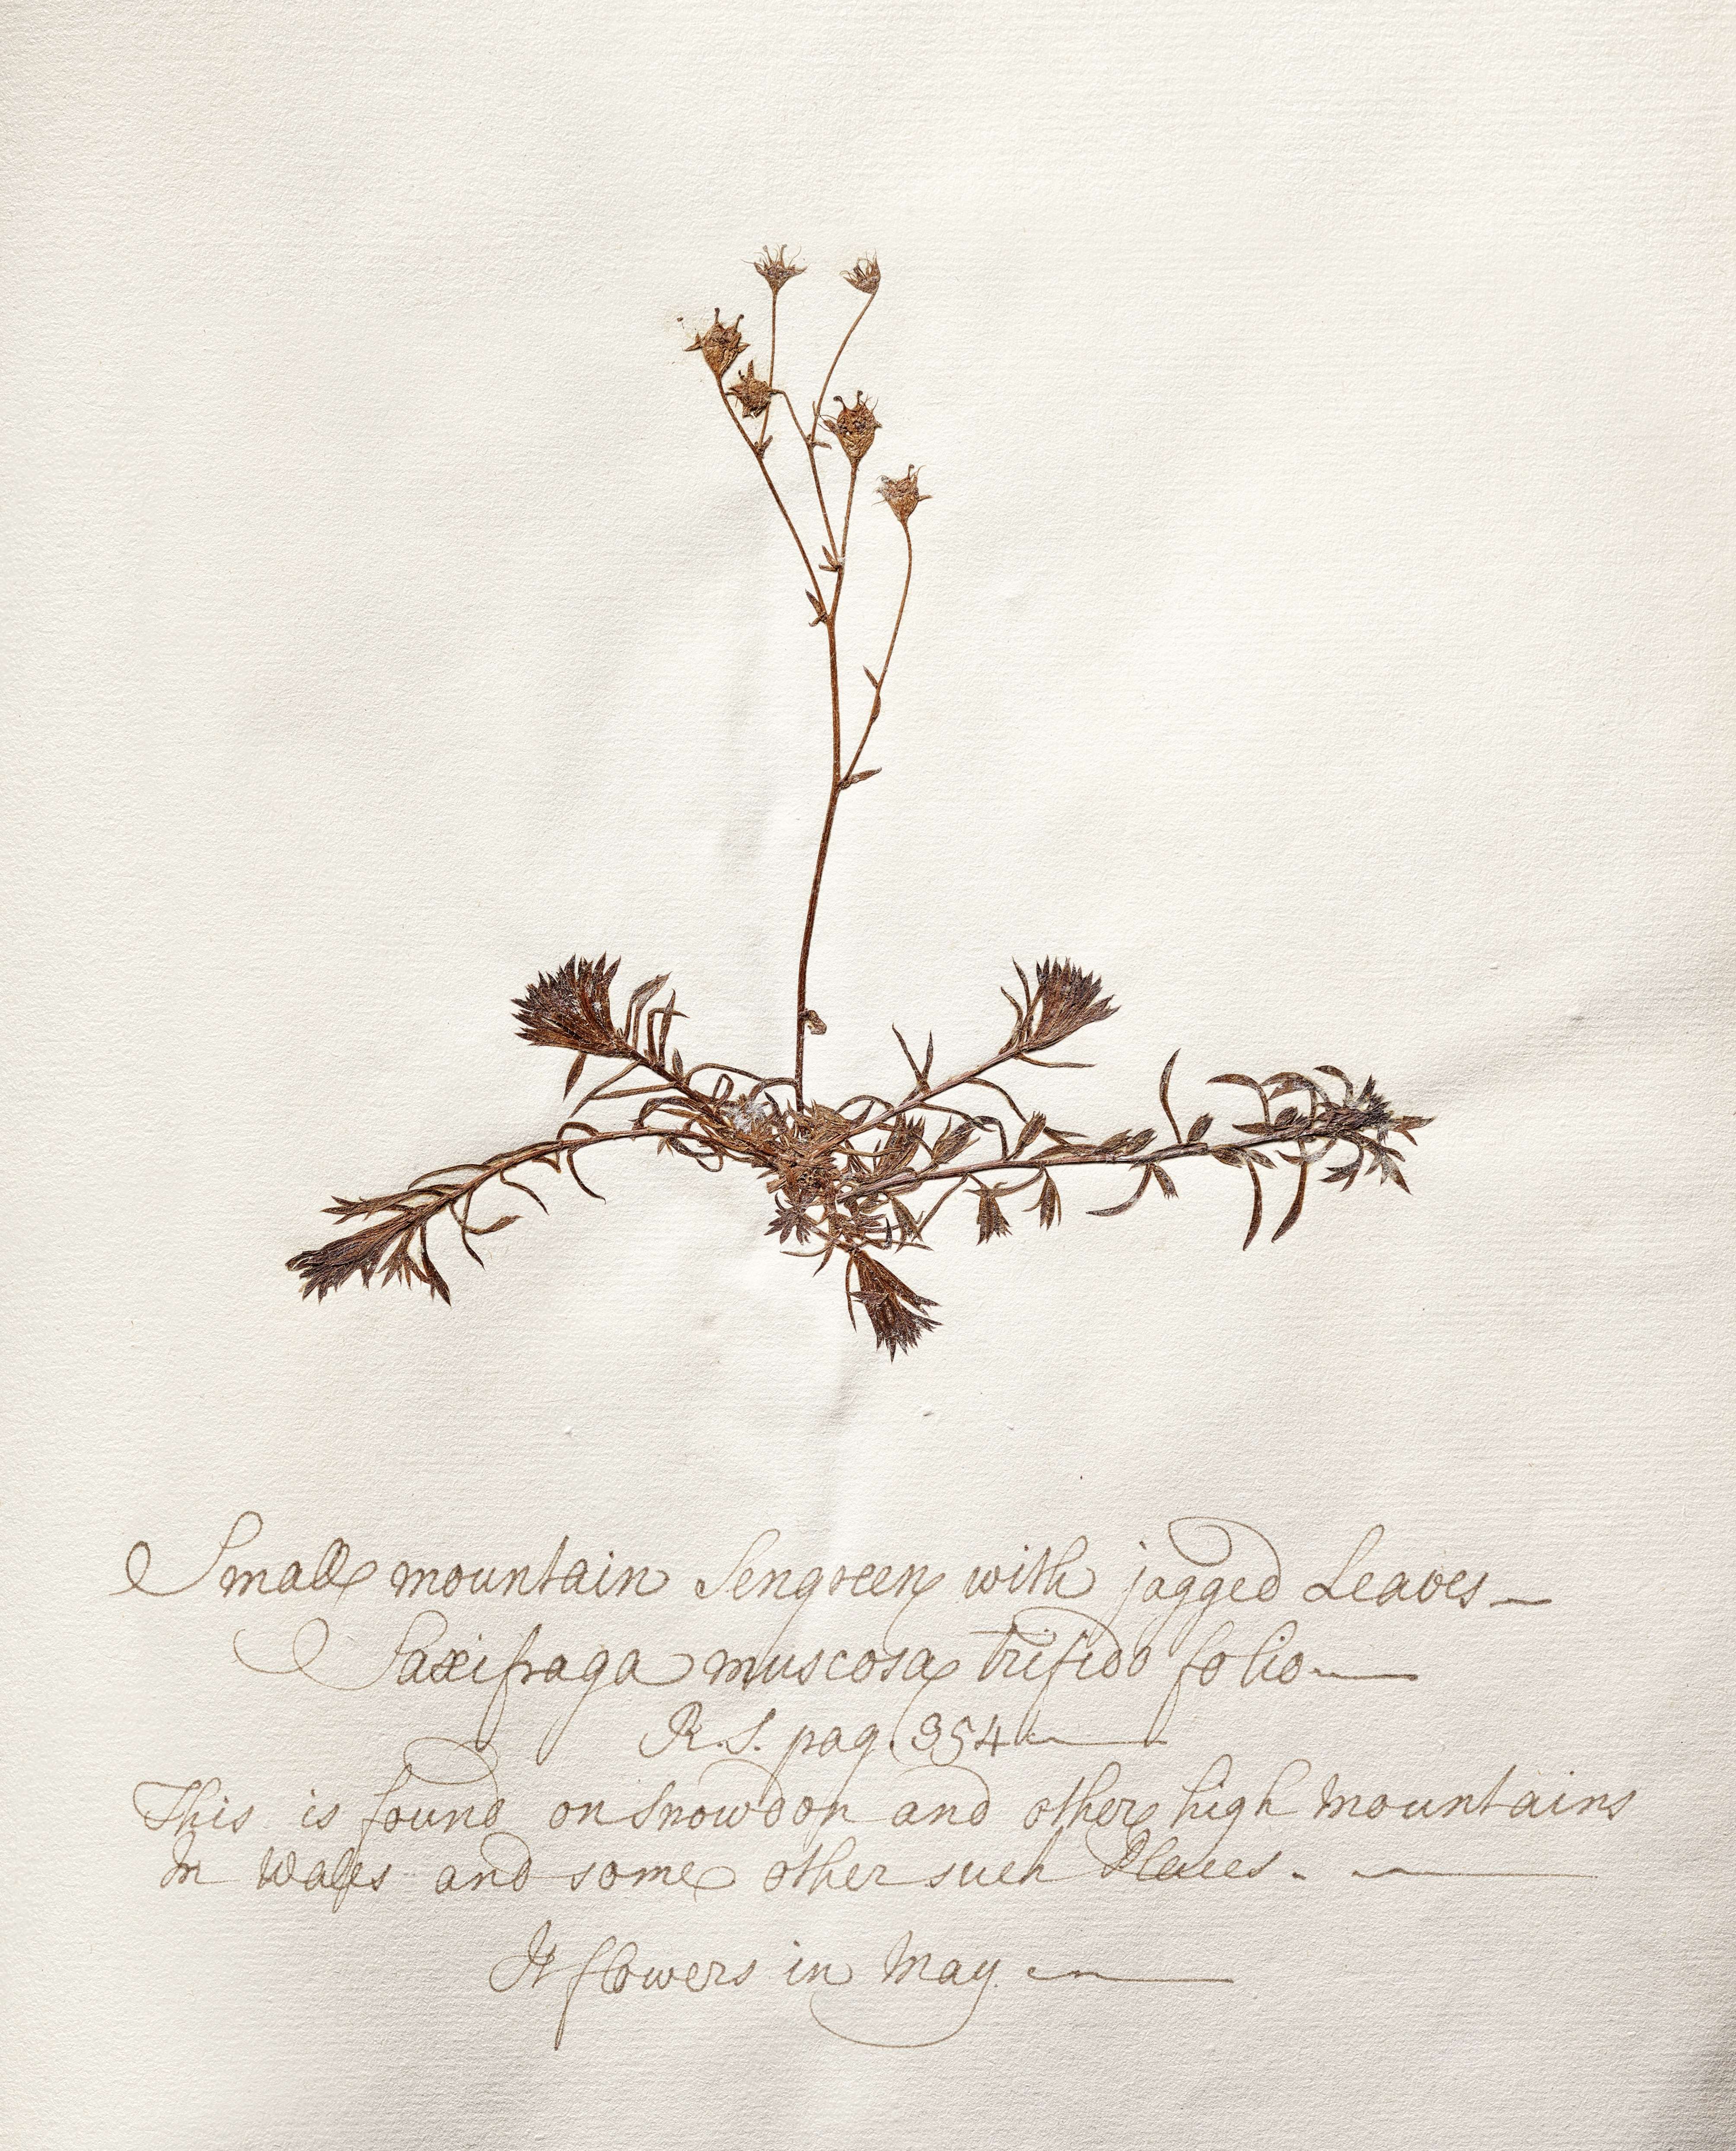 Small mountain Sengreen with jagged Leaves
Saxifraga muscosa trifido folio
R.S. pag. 354
This is found on Snowdon and other high mountains
In Wales and some other such Places.
It flowers in May.